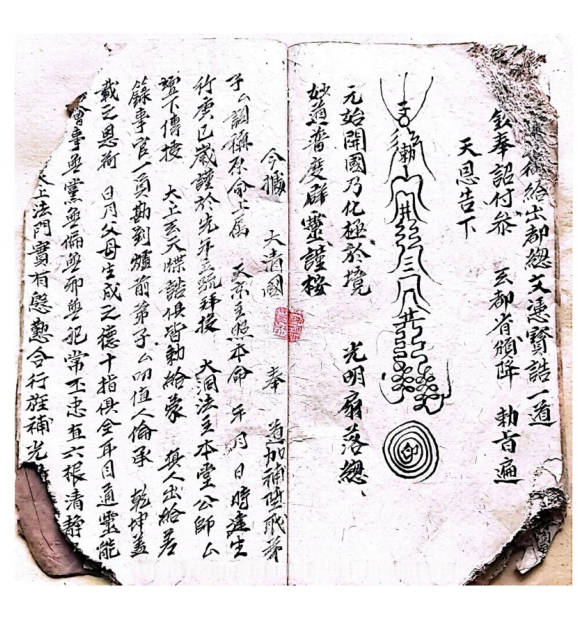 給出都總文憑寶誥一道
敕奉詔付參 玄都省頒降 勅旨遍
天恩告下
元始開國乃化極於境 光明扇落總
妙道普度群靈謹按
今據 大清國 奉 道加補陞職弟
子厶謂稱系命上屬 天京主照本命 年 月 日 時建生
竹庚已歲謹於先年 拜投 大洞法主本堂公師厶
壇下傳授 太上玄天牒誥俱皆勅給蒙 真人出給差
籙事官一員勘到爐前弟子厶叨值人倫承 乾坤蓋
載之恩荷 日月父母生成之德十指俱全耳目通靈能
會事無黨無偏無邪無犯常丕忠直六根清靜
上法門實有慇懃合行旌補光